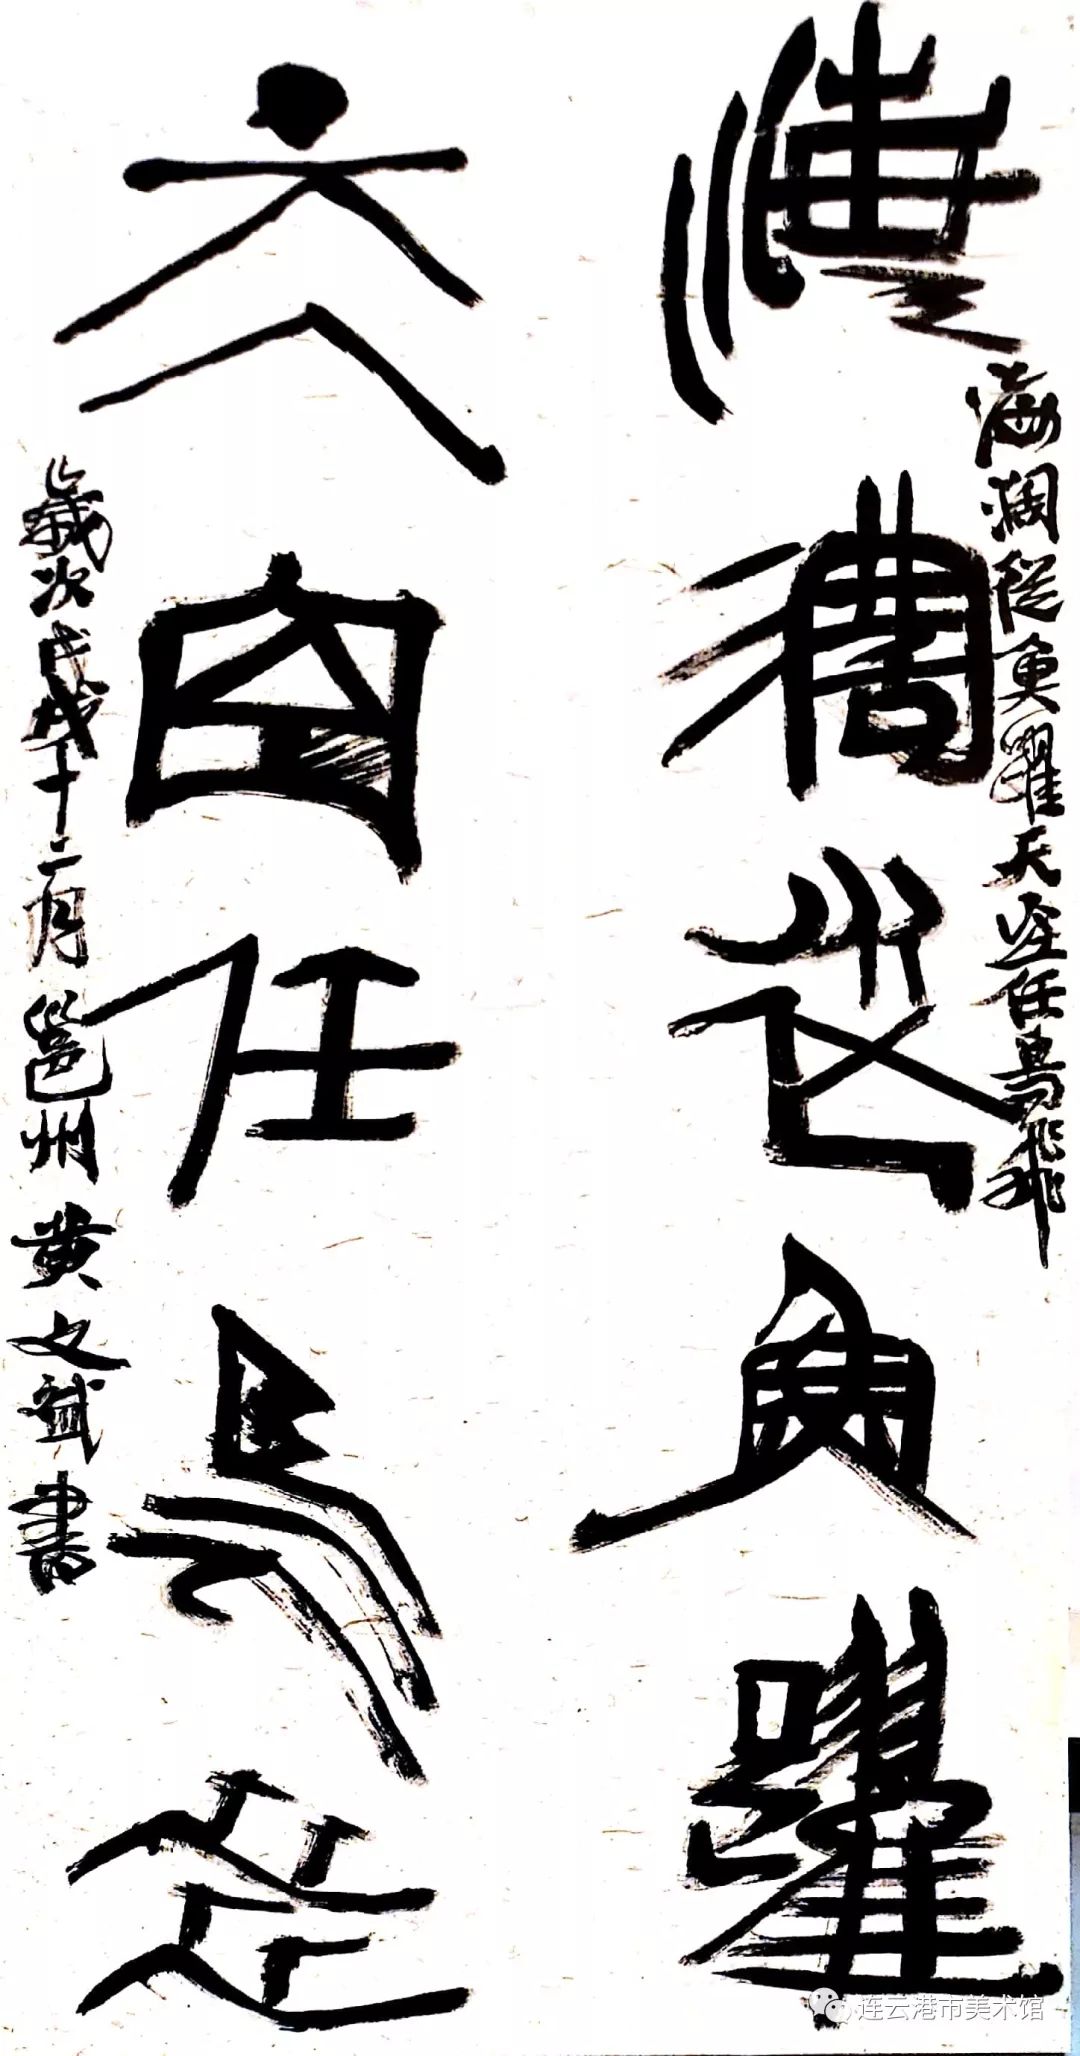 海濶從魚躍天空任鳥飛
海濶從魚躍
天空任鳥飛
歲次戊戌十二月邕州黄文斌書
连云港市美术馆